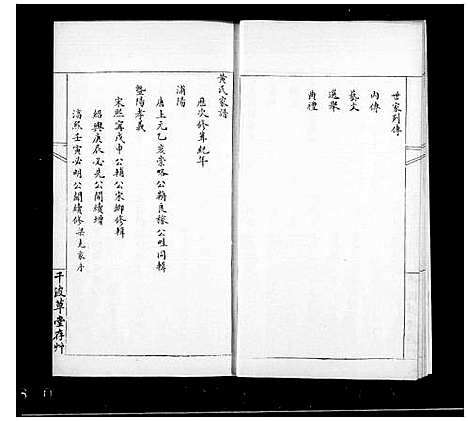 世家列傳
內傳
藝文
選舉
典禮
黃氏家譜
歷次修葺紀年
浦陽
唐上元乙亥崇略公籍良稼公 同輯
暨陽孝義
宋熙寧戊申公籍公宗鄉修輯
紹興庚辰必先公閏續增
淳熙壬寅必明公閏續修梁克家序
千波草堂存艸